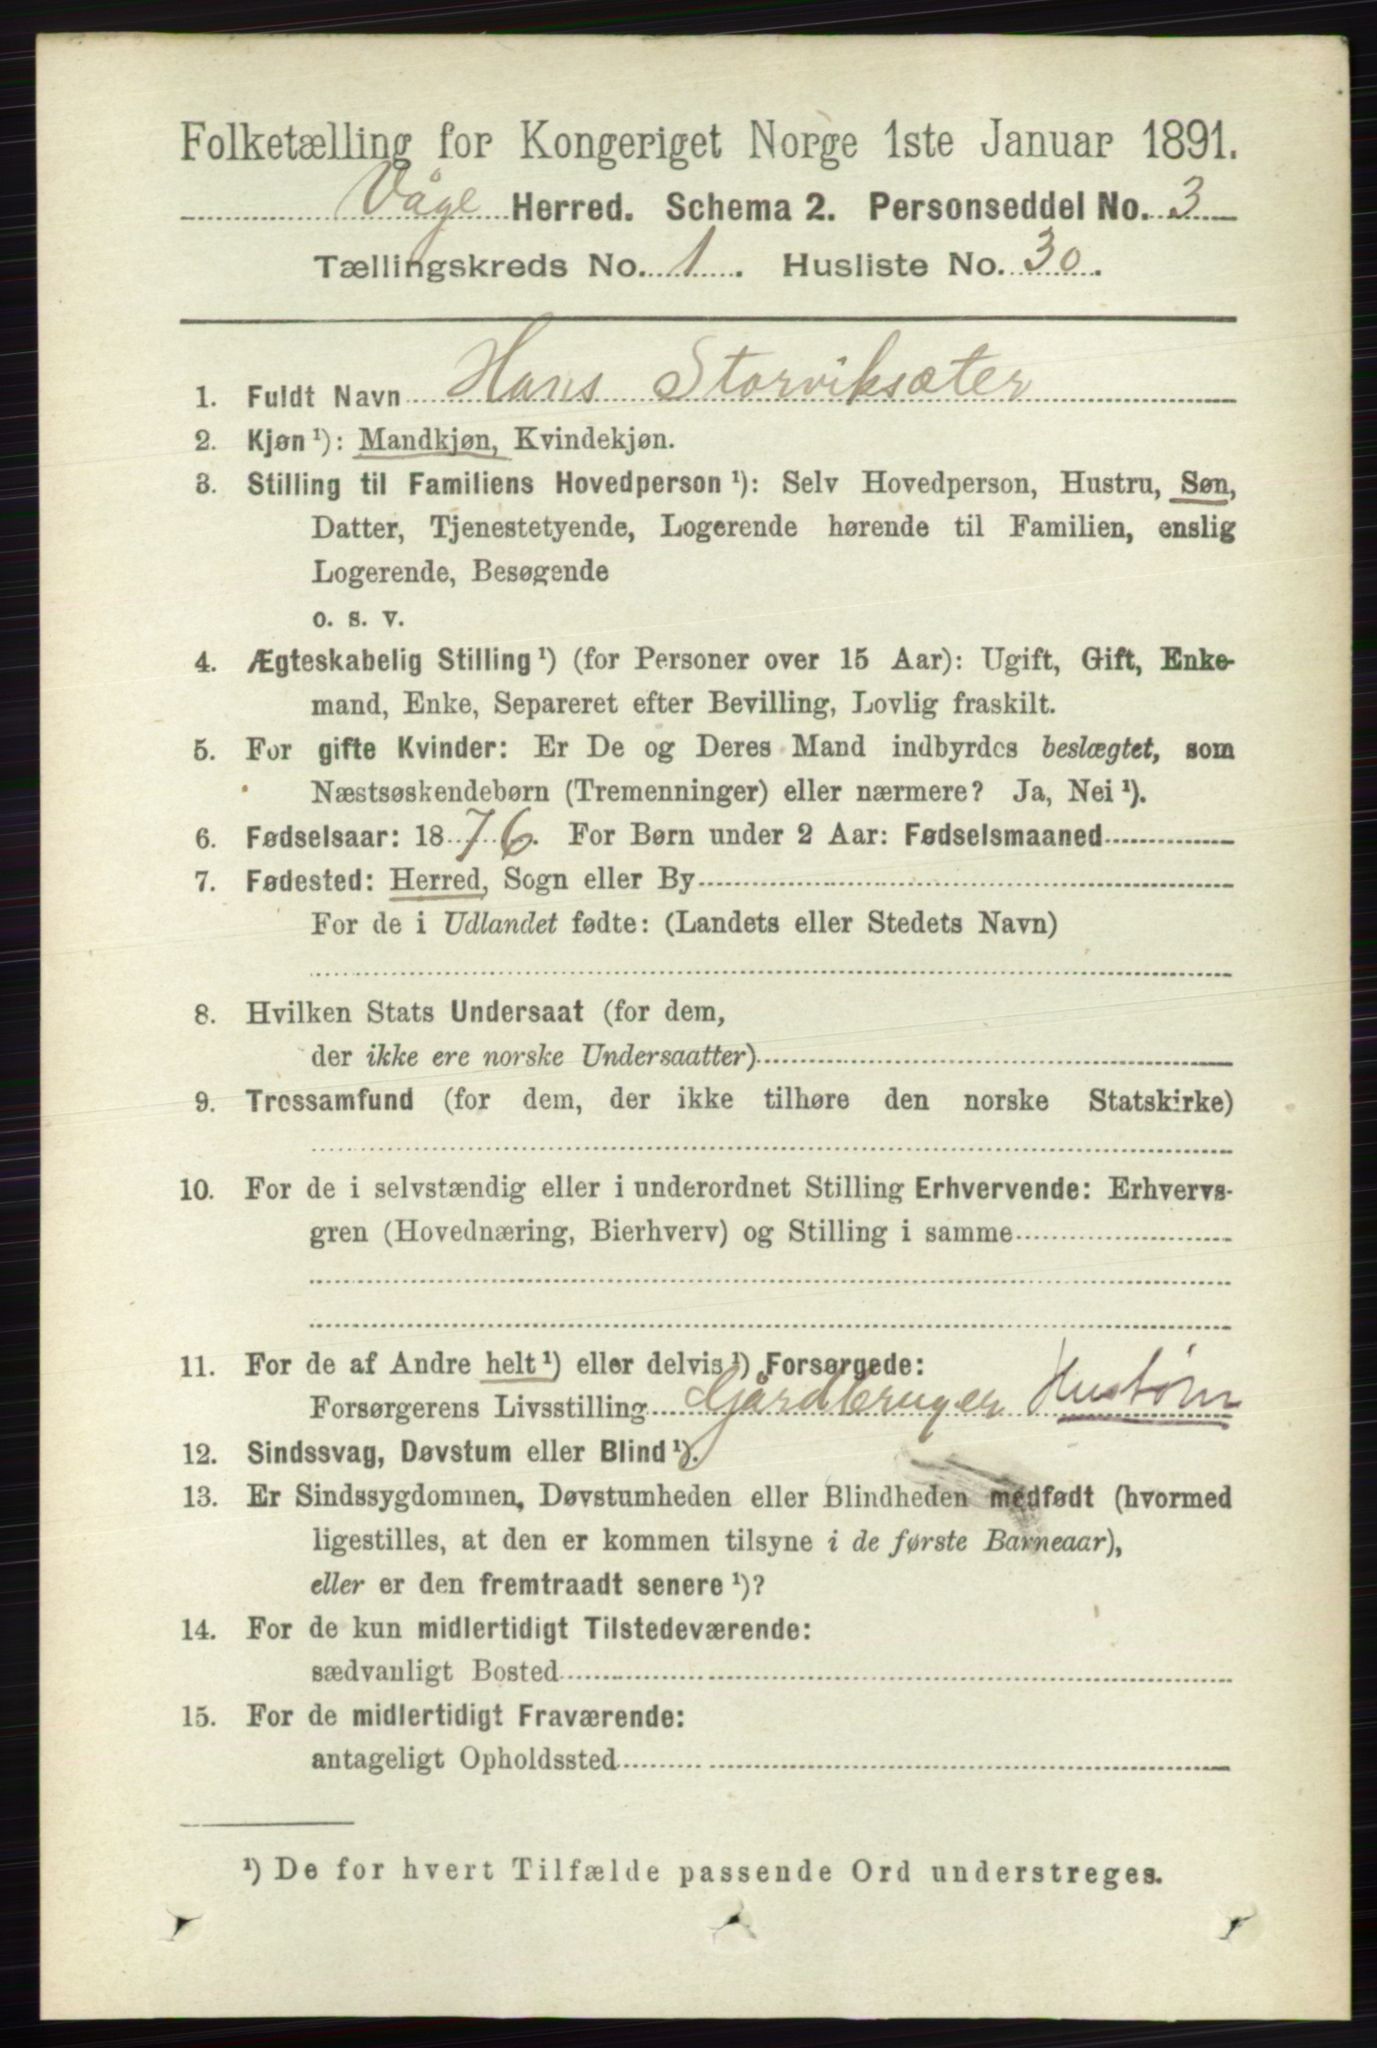 Folketælling for Kongeriget Norge 1ste Januar 1891.
Våge Herred. Schema 2. Personseddel No. 3
Tællingskreds No. 1. Husliste No. 30.
1. Fuldt Navn Hans Storviksæter
2. Kjøn ¹): Mandkjøn, Kvindekjøn.
3. Stilling til Familiens Hovedperson ¹): Selv Hovedperson, Hustru, Søn,
Datter, Tjenestetyende, Logerende hørende til Familien, enslig
Logerende, Besøgende
o. s. v.
4. Ægteskabelig Stilling ¹) (for Personer over 15 Aar): Ugift, Gift, Enke-
mand, Enke, Separeret efter Bevilling, Lovlig fraskilt.
5. For gifte Kvinder: Er De og Deres Mand indbyrdes beslægtet, som
Næstsøskendebørn (Tremenninger) eller nærmere? Ja, Nei ¹).
6. Fødselsaar: 1876. For Børn under 2 Aar: Fødselsmaaned
7. Fødested: Herred, Sogn eller By
For de i Udlandet fødte: (Landets eller Stedets Navn)
8. Hvilken Stats Undersaat (for dem,
der ikke ere norske Undersaatter)
9. Trossamfund (for dem, der ikke tilhøre den norske Statskirke)
10. For de i selvstændig eller i underordnet Stilling Erhvervende: Erhvervs-
gren (Hovednæring, Bierhverv) og Stilling i samme
11. For de af Andre helt ¹) eller delvis ¹) Forsørgede:
Forsørgerens Livsstilling Gårdbruger
12. Sindssvag, Døvstum eller Blind ¹).
13. Er Sindssygdommen, Døvstumheden eller Blindheden medfødt (hvormed
ligestilles, at den er kommen tilsyne i de første Barneaar),
eller er den fremtraadt senere ¹)?
14. For de kun midlertidigt Tilstedeværende:
sædvanligt Bosted
15. For de midlertidigt Fraværende:
antageligt Opholdssted
¹) De for hvert Tilfælde passende Ord understreges.